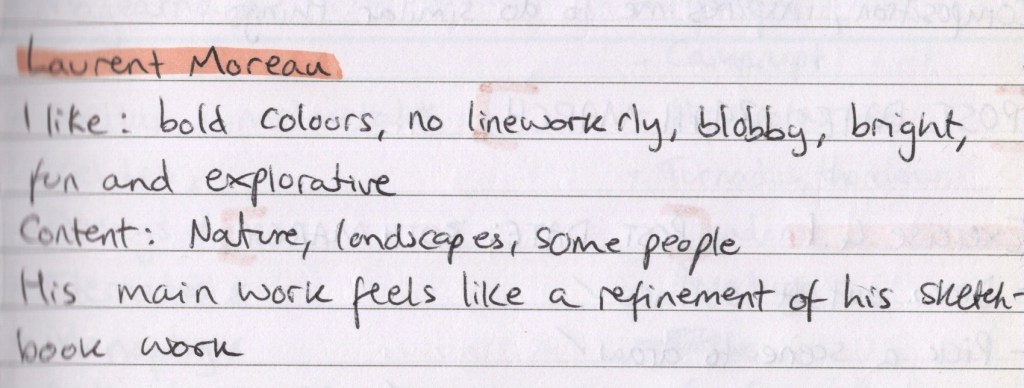 Laurent Moreau
I like: bold colours, no linework rly, blobby, bright,
fun and explorative
Content: Nature, landscapes, some people
His main work feels like a refinement of his sketch-
book work